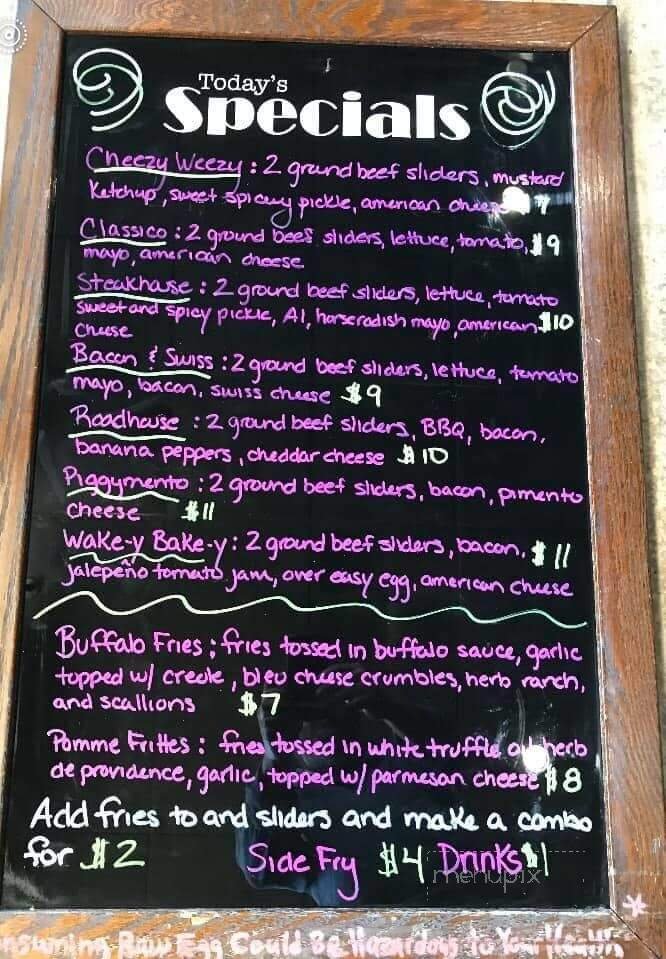 Today's
Specials
Cheezy Weezy : 2 ground beef sliders, mustard
Ketchup, sweet spicy pickle, american cheese 7
Classico : 2 ground beef sliders, lettuce, tomato, $9
mayo, american cheese
Steakhouse : 2 ground beef sliders, lettuce, tomato
sweet and spicy pickle, A1, horseradish mayo, american $10
cheese
Bacon & Swiss : 2 ground beef sliders, lettuce, tomato
mayo, bacon, swiss cheese $9
Roadhouse : 2 ground beef sliders, BBQ, bacon,
banana peppers, cheddar cheese $10
Piggymento : 2 ground beef sliders, bacon, pimento
cheese $11
Wake-y Bake-y : 2 ground beef sliders, bacon, $11
jalepeño tomato jam, over easy egg, american cheese
Buffalo Fries ; fries tossed in buffalo sauce, garlic
topped w/ creole, bleu cheese crumbles, herb ranch,
and scallions $7
Pomme Frittes : fries tossed in white truffle oil, herb
de providence, garlic, topped w/ parmesan cheese $8
Add fries to and sliders and make a combo
for $2 Side Fry $4 Drinks $1
menupix
onsuming Raw Egg Could Be Hazardous to Your Health